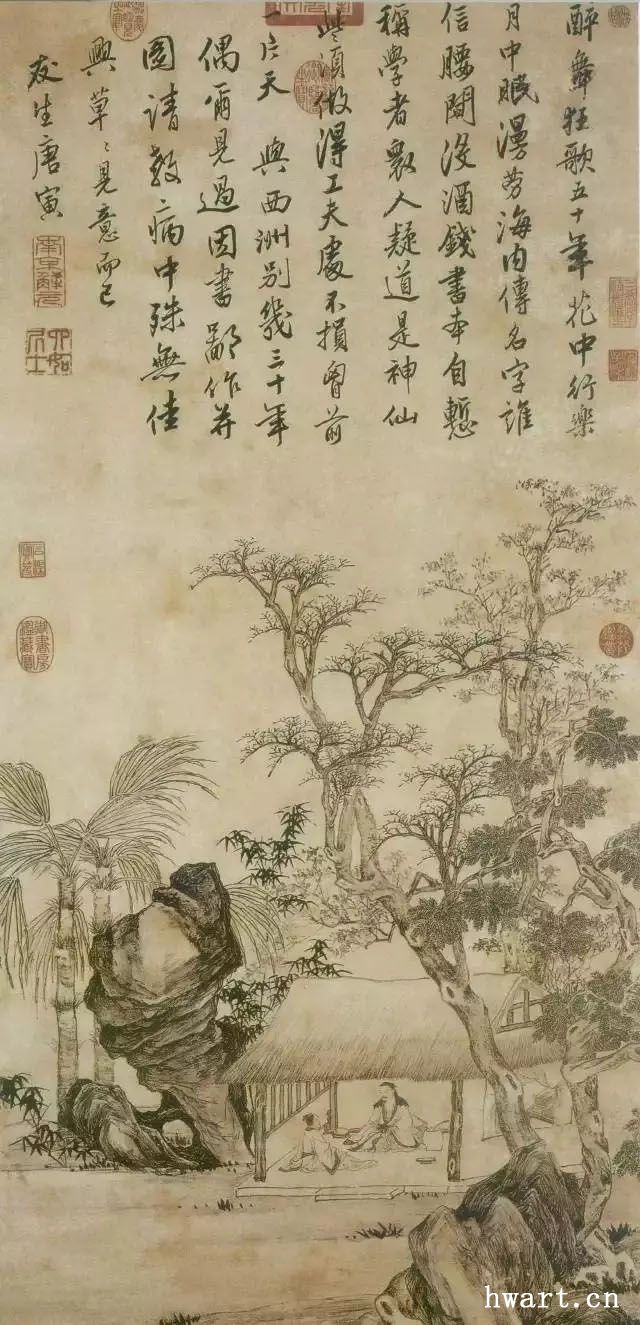 醉舞狂歌五十年花中行樂
月中眠漫勞海内傳名字誰
信腰間沒酒錢書本自慙
稱學者衆人疑道是神仙
些須做得工夫處不損胷前
一片天 與西洲別幾三十年
偶爾見過因書鄙作并
圖請教病中殊無佳
興草〻見意而已
友生唐寅
南京解元
六如居士
御書房鑑藏寶
hwart.cn